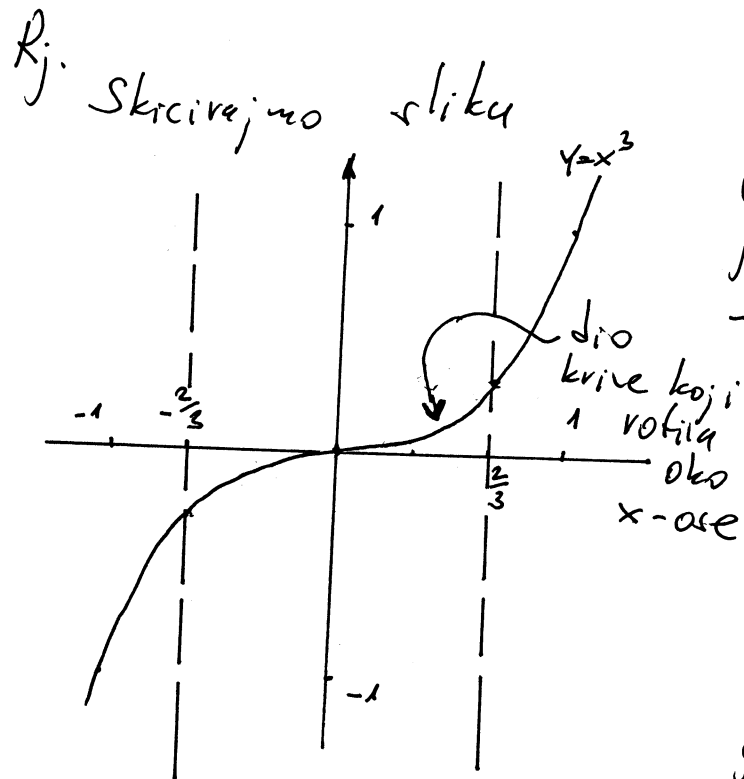 Rj.
Skicirajmo sliku
y=x³
1
dio
krive koji
rotira
oko
x-ose
-1
-2/3
1
2/3
-1